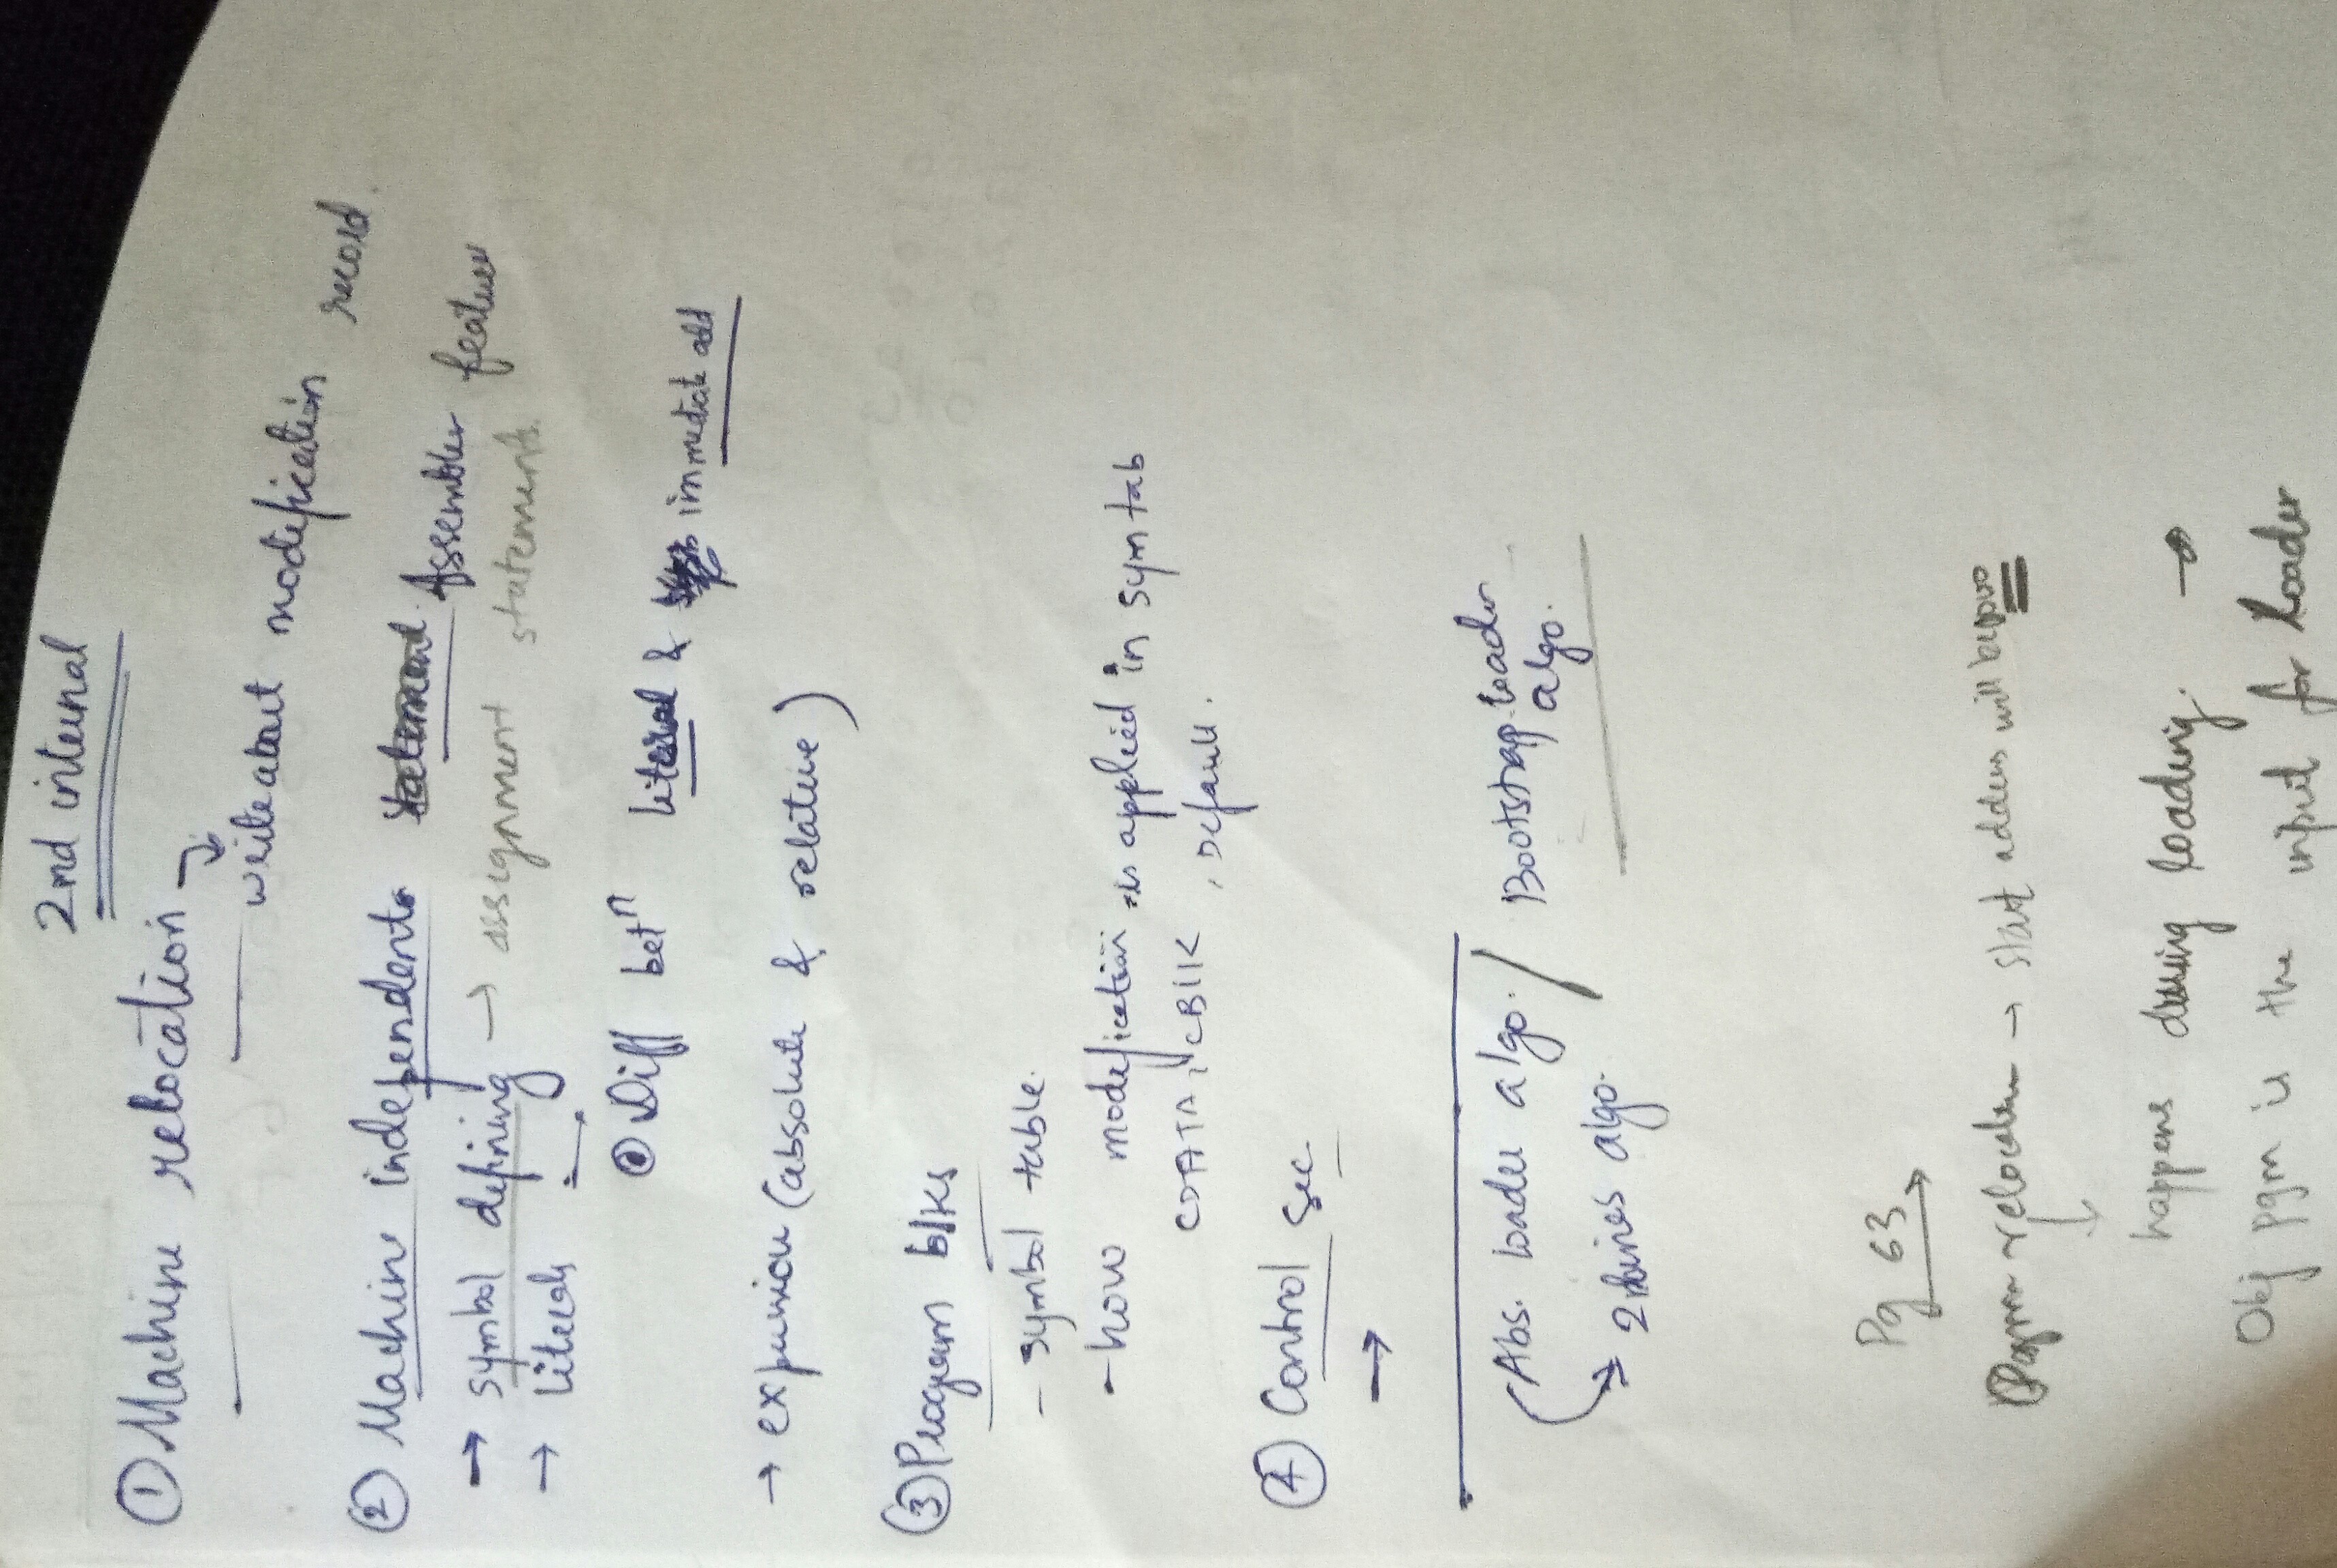 2nd internal
① Machine relocation →
write about modification record.
② Machine independent Assembler feature
→ symbol defining → assignment statement.
→ Literals
Diff betⁿ literal & immediate add
→ expression (absolute & relative)
③ Program blks
- symbol table.
- how modification is applied in symtab
CDATA, CBLK, Default.
④ Control Sec
→
(Abs. loader algo. / Bootstrap loader algo.
→ 2 lines algo.
Pg 63 →
Pgm relocation → start address will be
happens during loading. →
Obj pgm is the input for loader